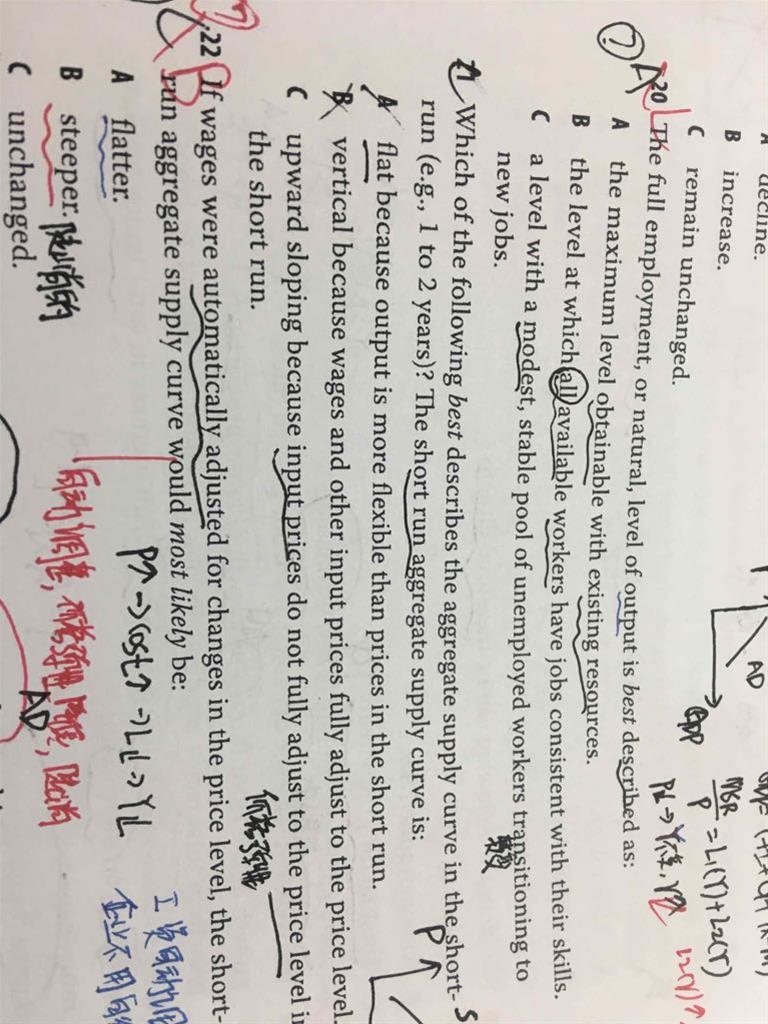 A decline.
B increase.
C remain unchanged.
20 The full employment, or natural, level of output is best described as:
A the maximum level obtainable with existing resources.
B the level at which all available workers have jobs consistent with their skills.
C a level with a modest, stable pool of unemployed workers transitioning to
new jobs.
Which of the following best describes the aggregate supply curve in the short-
run (e.g., 1 to 2 years)? The short run aggregate supply curve is:
A flat because output is more flexible than prices in the short run.
B vertical because wages and other input prices fully adjust to the price level.
C upward sloping because input prices do not fully adjust to the price level in
the short run.
22 If wages were automatically adjusted for changes in the price level, the short-
run aggregate supply curve would most likely be:
A flatter.
B steeper. 陡峭的
C unchanged.
P↑→cost↑→L↓→Y↓
自动调整,价格弹性降低,陡峭
AD
AD
GDP
P
价格弹性